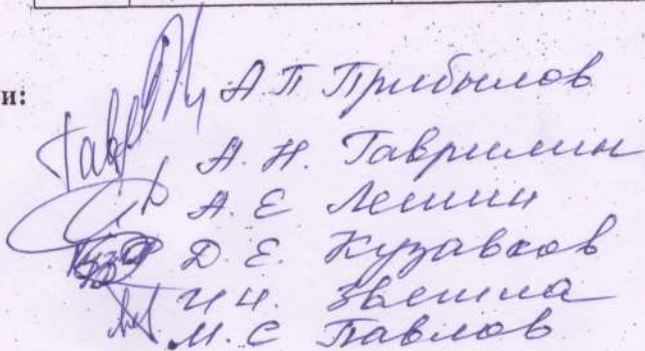 и:
А П Прибылов
А. Н. Гаврилин
А. Е Лешин
Д. Е. Кузавков
И Н.
М. С Павлов